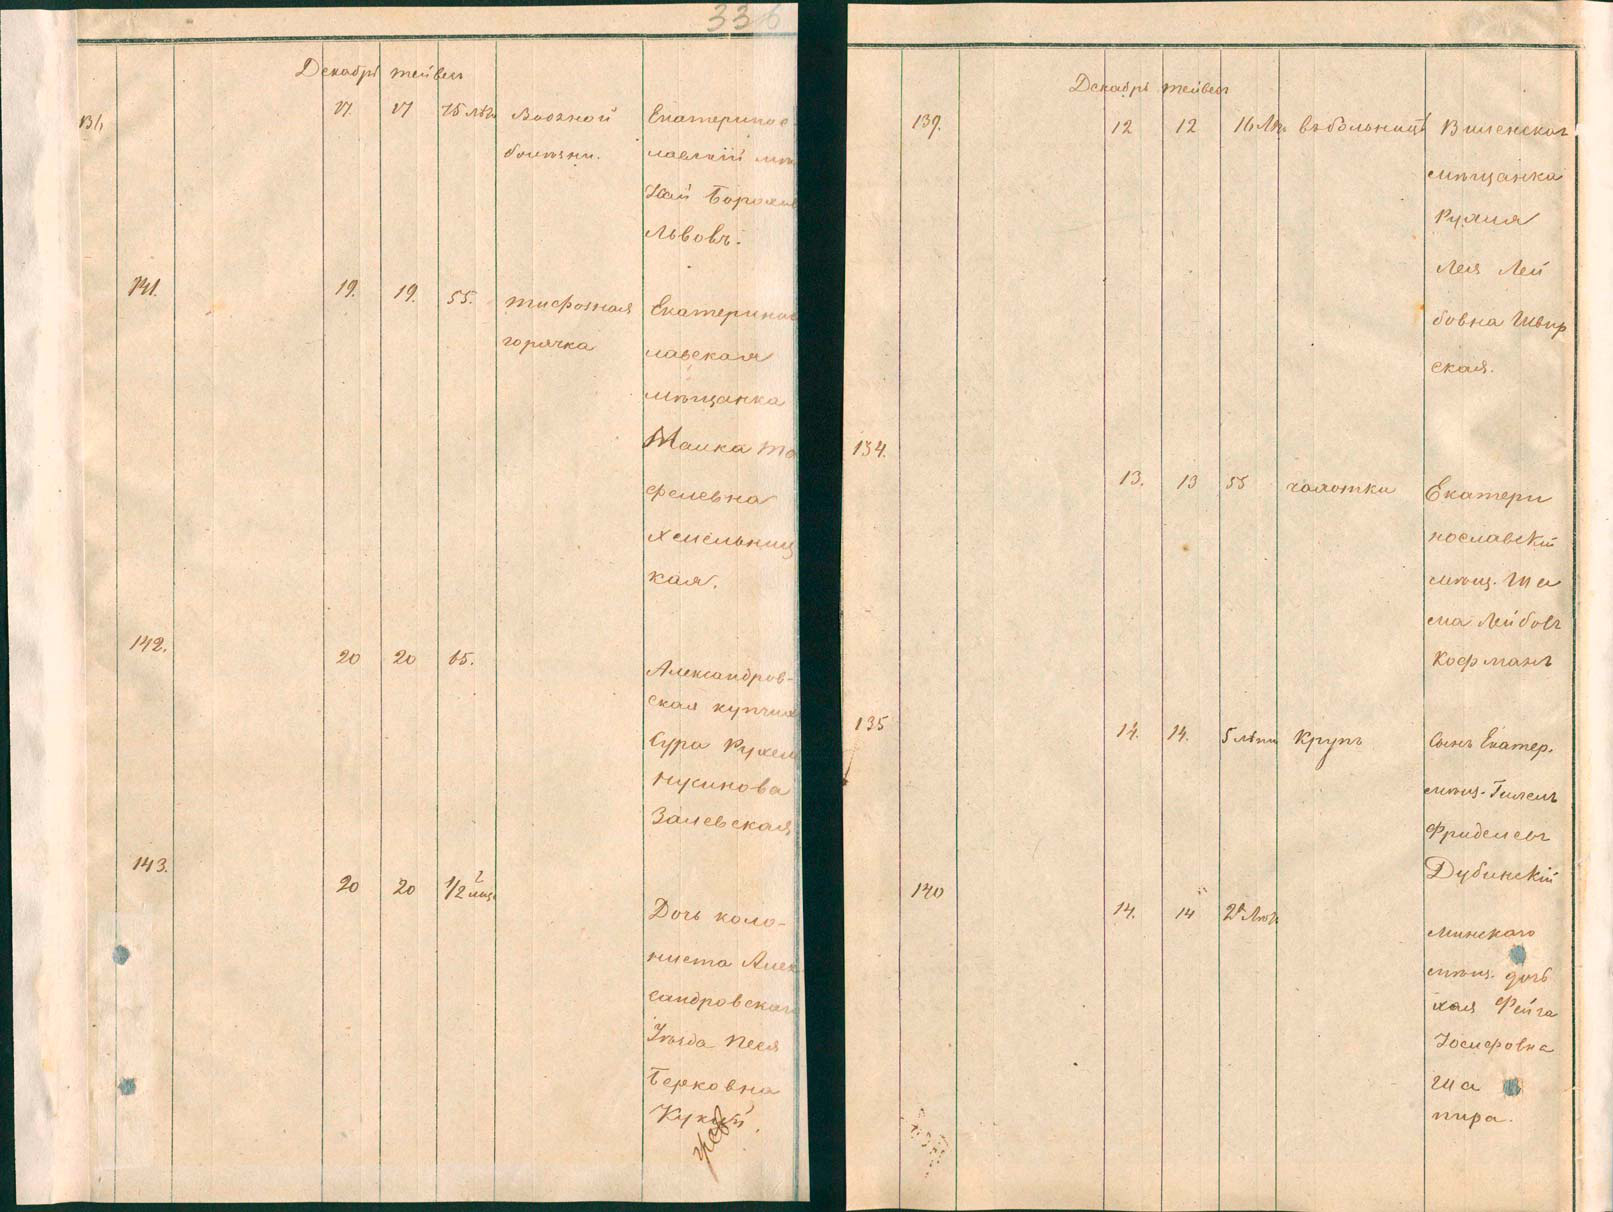 336
Декабрь тейвет
136
17. 17 75 лѣт Водяной
болѣзни.
Екатеринос
лавскій мѣщ
Хай Борохов
Львовъ.
141.
19. 19. 55. тифозная
горячка
Екатеринос
лавская
мѣщанка
Малка То
фелевна
Хмельниц
кая.
142.
20 20 65.
Александров-
ская купчиха
Сура Рухел
Нусинова
Залевская
143.
20 20 1/2
Дочь коло-
ниста Алек
сандровскаго
Уѣзда Песя
Берковна
Кукуй.
Декабрь тейвет
139.
12 12 16 лѣ. въ больницѣ
Виленская
мѣщанка
Рухля
Лея Лей
бовна Швир
ская.
134.
13. 13 55 чахотки
Екатери
нославскій
мѣщ. Ша
ма Лейбовъ
Кофманъ
135
14. 14. 5 лѣтъ Крупъ
Сынъ Екатер.
мѣщ. Гилель
Фриделевъ
Дубинскій
140
14. 14 2 лѣт
минскаго
мѣщ. дочь
хая Фейга
Іосифовна
Ша
пира.